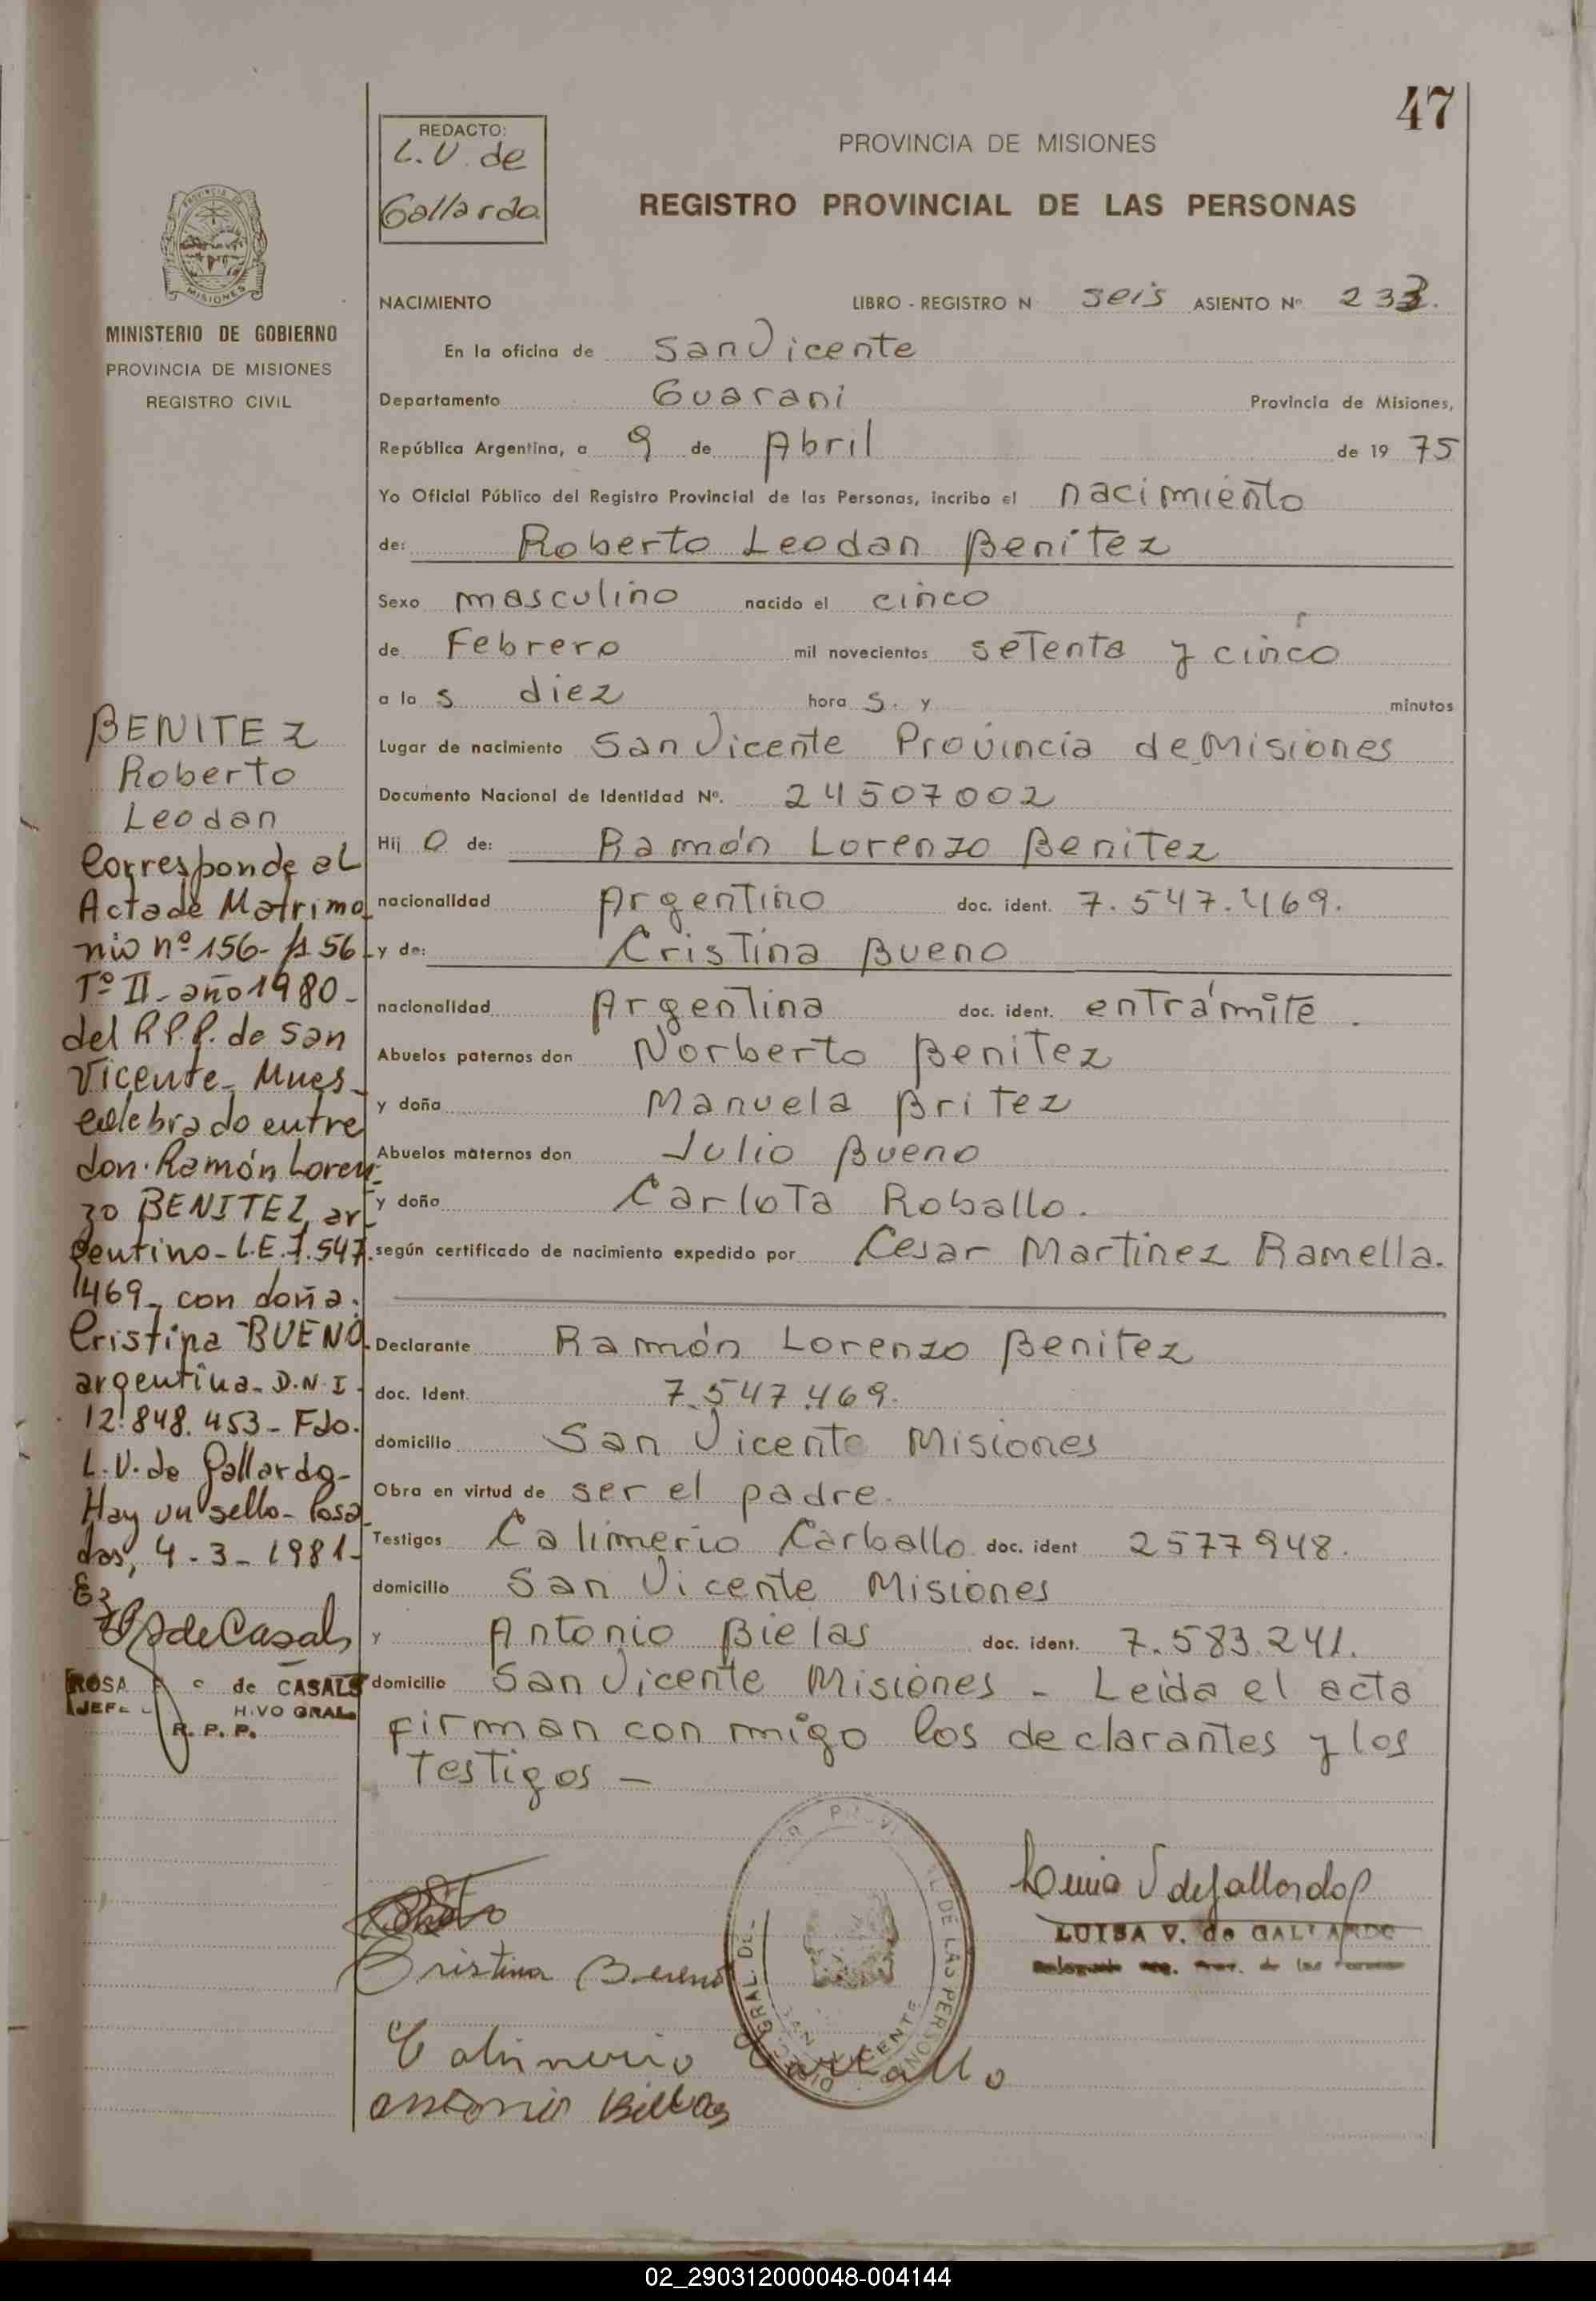 47
REDACTO:
L.V. de
Gallardo
PROVINCIA DE MISIONES
REGISTRO PROVINCIAL DE LAS PERSONAS
MISIONES
MINISTERIO DE GOBIERNO
PROVINCIA DE MISIONES
REGISTRO CIVIL
NACIMIENTO LIBRO - REGISTRO N seis ASIENTO Nº 233.
En la oficina de San Vicente
Departamento Guarani Provincia de Misiones,
República Argentina, a 9 de Abril de 19 75
Yo Oficial Público del Registro Provincial de las Personas, incribo el nacimiento
de: Roberto Leodan Benitez
Sexo masculino nacido el cinco
de Febrero mil novecientos setenta y cinco
a la s diez hora s. y minutos
Lugar de nacimiento San Vicente Provincia de Misiones
Documento Nacional de Identidad Nº. 24507002
Hij o de: Ramón Lorenzo Benitez
nacionalidad Argentino doc. ident. 7.547.469.
y de: Cristina Bueno
nacionalidad Argentina doc. ident. entrámite.
Abuelos paternos don Norberto Benitez
y doña Manuela Britez
Abuelos maternos don Julio Bueno
y doña Carlota Roballo.
según certificado de nacimiento expedido por Cesar Martinez Ramella.
Declarante Ramón Lorenzo Benitez
doc. Ident. 7.547.469.
domicilio San Vicente Misiones
Obra en virtud de ser el padre.
Testigos Calimerio Carballo doc. ident 2577948.
domicilio San Vicente Misiones
y Antonio Bielas doc. ident. 7.583.241.
domicilio San Vicente Misiones - Leida el acta
firman con migo los declarantes y los
testigos -
BENITEZ
Roberto
Leodan
Corresponde al
Acta de Matrimo
nio nº 156- fº 56
Tº II - año 1980 -
del R.P.P. de San
Vicente - Mnes -
celebrado entre
don Ramón Loren
zo BENITEZ, ar
gentino - L.E. 7.547.
469 - con doña:
Cristina BUENO
argentina - D.N.I.
12.848.453 - Fdo.
L.V. de Gallardo -
Hay un sello - Posa
das, 4 - 3 - 1981 -
de Casals
ROSA de CASALS
HIVO GRAL.
R. P. P.
Cristina Bueno
Calimerio Carballo
Antonio Bielas
DE LAS PERSONAS
GRAL. DEL
SAN VICENTE
Luisa V de Gallardo
LUISA V. de GALLARDO
02_290312000048-004144